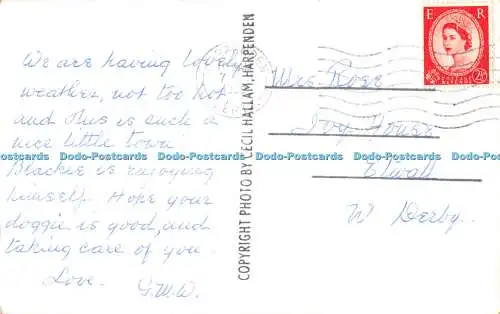 We are having lovely
weather, not too hot
and this is such a
nice little town
Blackie is enjoying
himself. Hope your
doggie is good, and
taking care of you.
Love.
G.M.W.
COPYRIGHT PHOTO BY CECIL HALLAM, HARPENDEN
E R
2½
Mrs Rose
Ivy House
Etwall
W Derby.
Dodo-Postcards Dodo-Postcards Dodo-Postcards Dodo-Postcards Dodo-Postcards